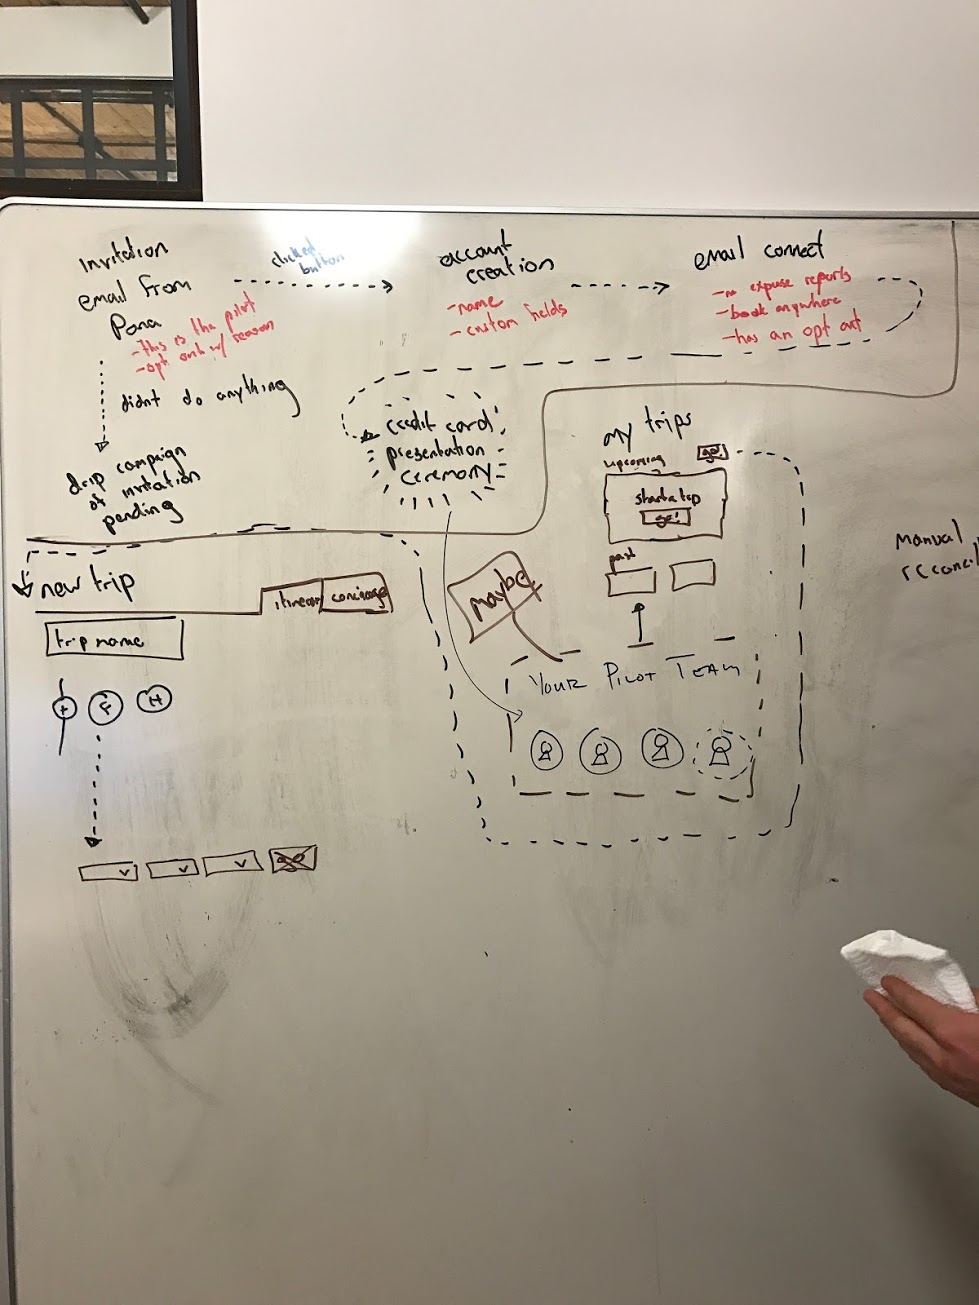 Invitation
email From
Pana
- this is the pilot
- opt out w/ reason
clicked
button
account
creation
- name
- custom fields
email connect
- no expense reports
- book anywhere
- has an opt out
didnt do anything
drip campaign
of invitation
pending
credit card
presentation
ceremony
my trips
upcoming
go!
start a trip
go!
past
manual
new trip
itinerary
concierge
trip name
F
H
maybe
YOUR PILOT TEAM